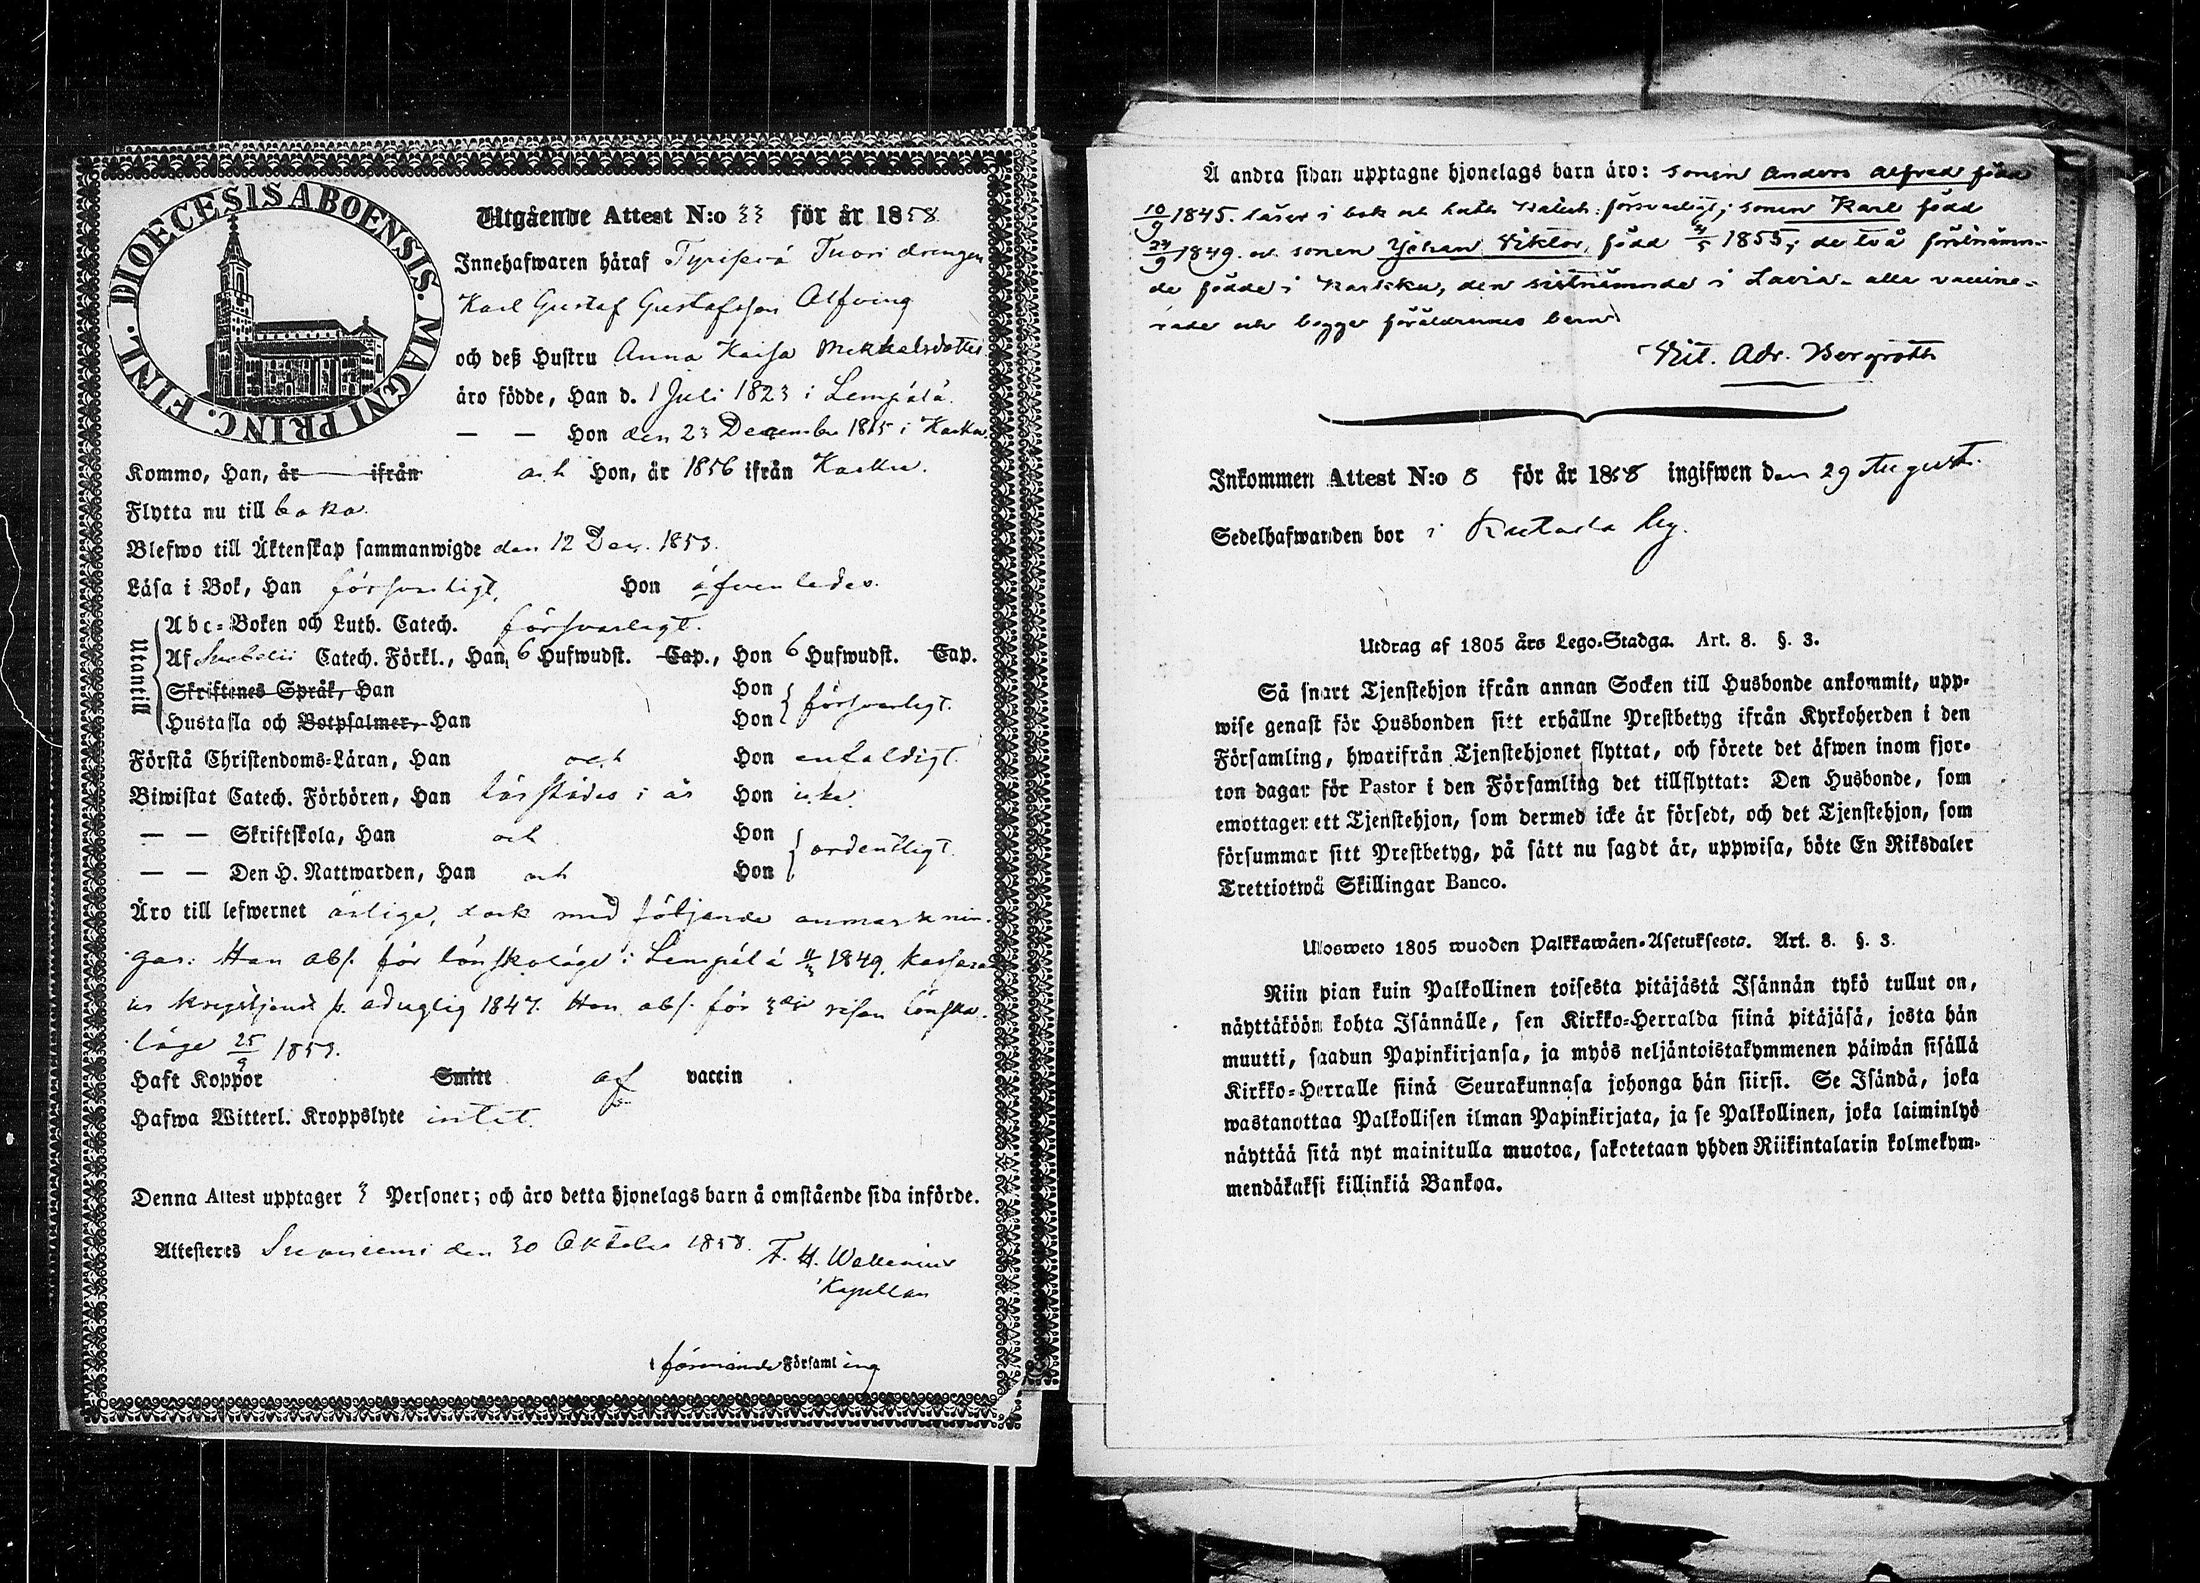 DIOECESIS ABOENSIS. MAGNI PRINC. FINL.
Utgående Attest N:o 33 för år 1858
Innehafwaren häraf Tyriseva Tuori drengen
Karl Gustaf Gustafsson Alfving
och deß Hustru Anna Kaisa Mickelsdotter
äro födde, Han d. 1 Juli 1823 i Lempälä.
— — Hon den 23 December 1815 i Karku
Kommo, Han, år ifrån och Hon, år 1856 ifrån Karku.
Flytta nu till baka.
Blefwo till Äktenskap sammanwigde den 12 Dec. 1853.
Läsa i Bok, Han försvarligt, Hon äfvenledes.
Utantill
Abc-Boken och Luth. Catech. försvarligt.
Af Svebelii Catech. Förkl., Han 6 Hufwudst. Cap., Hon 6 Hufwudst. Cap.
Skriftenes Språk, Han Hon
Hustafla och Botpsalmer, Han Hon försvarligt.
Förstå Christendoms-Läran, Han och Hon enfaldigt.
Biwistat Catech. Förhören, Han härstädes i år Hon icke.
— — Skriftskola, Han och Hon
— — Den H. Nattwarden, Han och Hon ordentligt.
Äro till lefwernet ärlige, dock med följande anmärknin-
gar: Han abs. för lönskoläge i Lempälä 1849, kasserad
ur krigstjenst s. oduglig 1847. Hon abs. för 3dje resan lönska-
läge 25/9 1853.
Haft Koppor Smitt af vaccin
Hafwa Witterl. Kroppslyte intet.
Denna Attest upptager 3 Personer; och äro detta hjonelags barn å omstående sida införde.
Attesteres Suoniemi den 30 Oktober 1858. F. H. Wallenius
Kapellan
i förenämnde Församling
Å andra sidan upptagne hjonelags barn äro: sonen Anders Alfred född
10/9 1845. läser i bok och Luth. Katech. försvarligt; sonen Karl född
24/9 1849. och sonen Johan Viktor, född 1855; de två förstnämn-
de födde i Karkku, den sistnämnde i Lavia - alla vaccine-
rade och begge föräldrarnes barn.
Vit. Adr. Bergroth
Inkommen Attest N:o 8 för år 1858 ingifwen den 29 August.
Sedelhafwanden bor i Kutala by.
Utdrag af 1805 års Lego-Stadga. Art. 8. §. 3.
Så snart Tjenstehjon ifrån annan Socken till Husbonde ankommit, upp-
wise genast för Husbonden sitt erhållne Prestbetyg ifrån Kyrkoherden i den
Församling, hwarifrån Tjenstehjonet flyttat, och förete det äfwen inom fjor-
ton dagar för Pastor i den Församling det tillflyttat: Den Husbonde, som
emottager ett Tjenstehjon, som dermed icke är försedt, och det Tjenstehjon, som
försummar sitt Prestbetyg, på sätt nu sagdt är, uppwisa, böte En Riksdaler
Trettiotwå Skillingar Banco.
Ulosweto 1805 wuoden Palkkawäen-Asetuksesta. Art. 8. §. 3.
Niin pian kuin Palkollinen toisesta pitäjästä Isännän tykö tullut on,
näyttäköön kohta Isännälle, sen Kirkko-Herralda siinä pitäjäsä, josta hän
muutti, saadun Papinkirjansa, ja myös neljäntoistakymmenen päiwän sisällä
Kirkko-Herralle siinä Seurakunnasa johonga hän siirsi. Se Isändä, joka
wastanottaa Palkollisen ilman Papinkirjata, ja se Palkollinen, joka laiminlyö
näyttää sitä nyt mainitulla muotoa, sakotetaan yhden Riikintalarin kolmekym-
mendäkaksi killinkiä Bankoa.